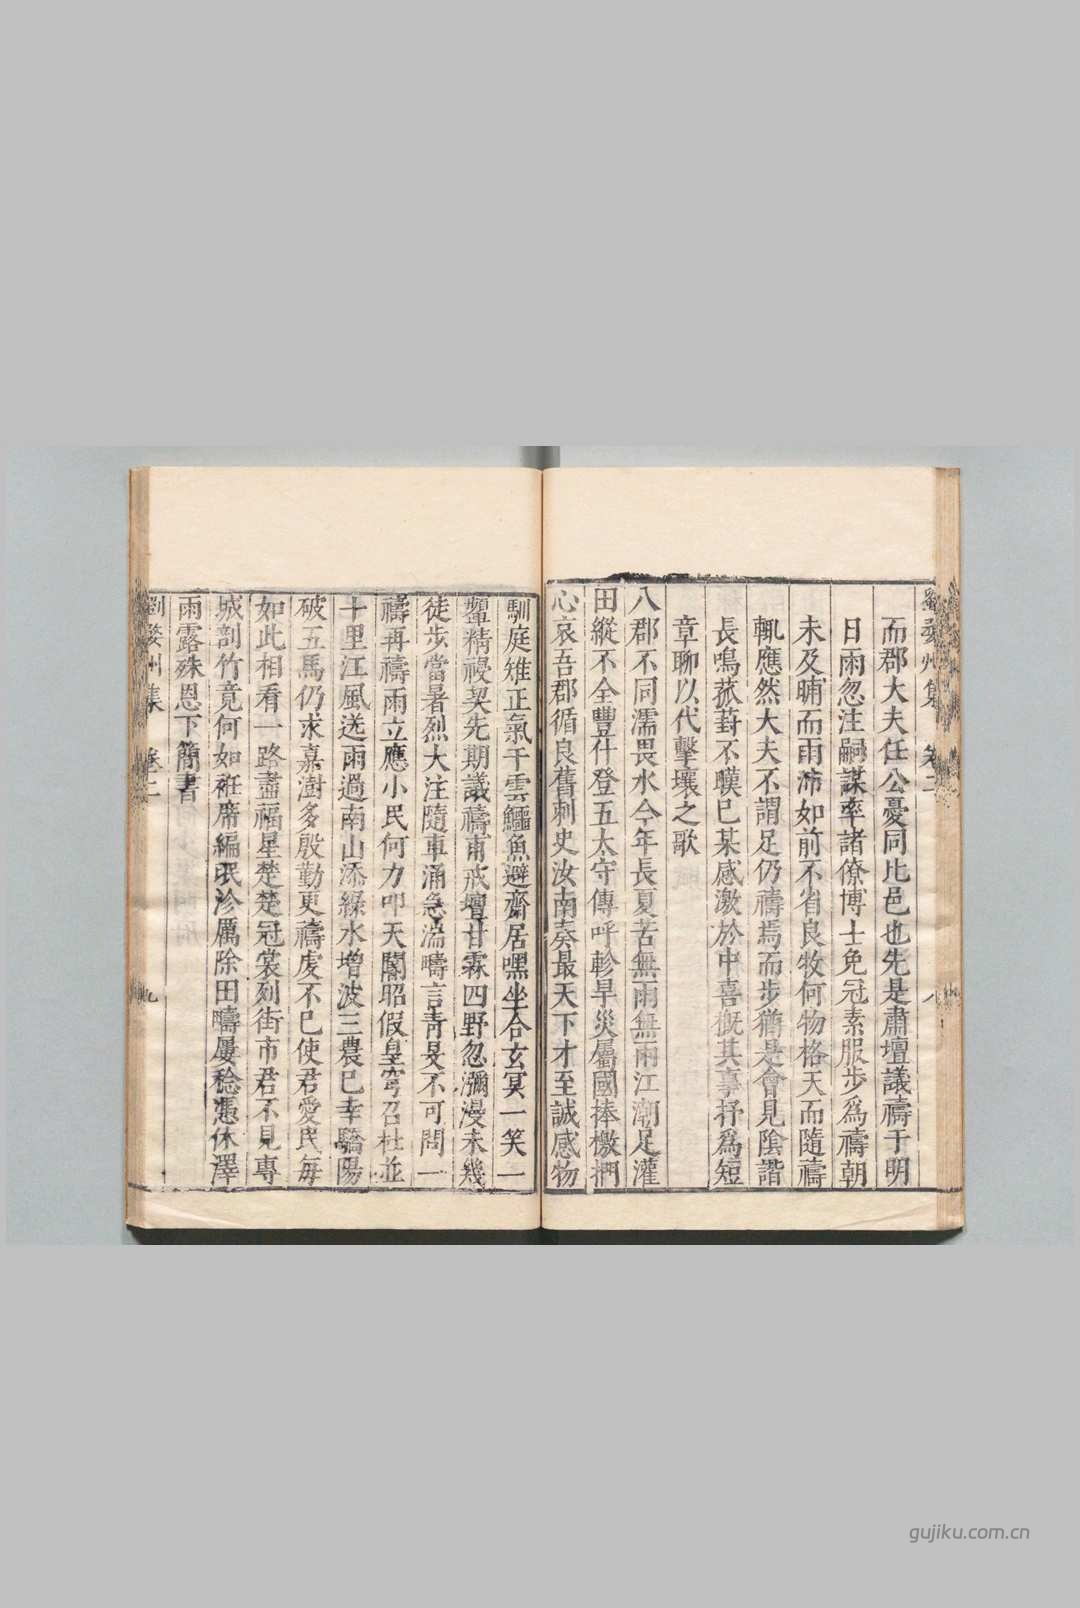 劉婺州集 卷二 八
而郡大夫任公憂同比邑也先是肅壇議禱于明
日雨忽注嗣謀率諸僚博士免冠素服步爲禱朝
未及晡而雨沛如前不省良牧何物格天而隨禱
輒應然大夫不謂足仍禱焉而步猶是會見陰譜
長鳴菰葑不嘆已某感激於中喜槪其事抒爲短
章聊以代擊壤之歌
八郡不同濡畏水今年長夏苦無雨無雨江潮足灌
田縱不全豐什登五太守傳呼軫旱災屬國捧檄捫
心哀吾郡循良舊刺史汝南奏最天下才至誠感物
馴庭雉正氣干雲鱷魚避齋居嘿坐合玄冥一笑一
顰精祲契先期議禱甫戒壇甘霖四野忽瀰漫未幾
徒步當暑烈大注隨車涌急湍疇言青旻不可問一
禱再禱雨立應小民何力叩天閽昭假皇穹召杜並
十里江風送雨過南山添綠水增波三農已幸驕陽
破五馬仍求嘉澍多殷勤更禱虔不已使君愛民每
如此相看一路盡福星楚楚冠裳列街市君不見專
城剖竹竟何如袵席編氓沴厲除田疇屢稔憑休澤
雨露殊恩下簡書
劉婺州集 卷二 九
gujiku.com.cn